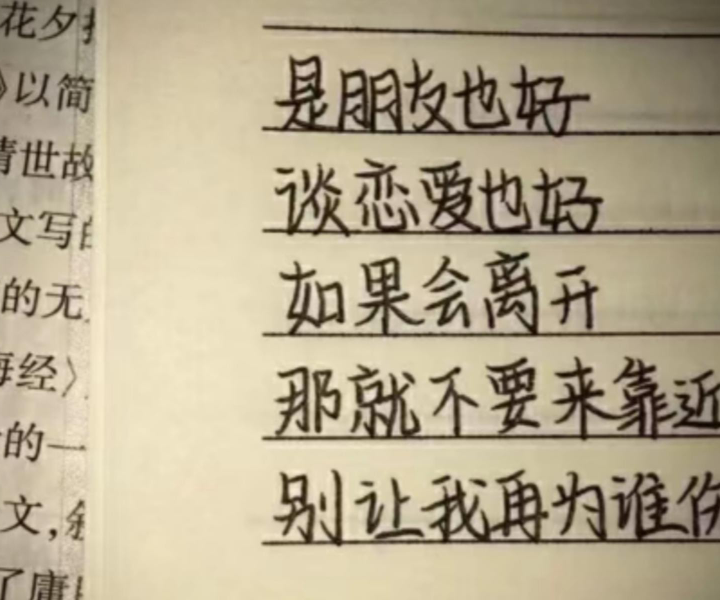 花夕
》以简
情世故
文写的
的无
海经》
的一
文，
了庸
是朋友也好
谈恋爱也好
如果会离开
那就不要来靠近
别让我再为谁伤